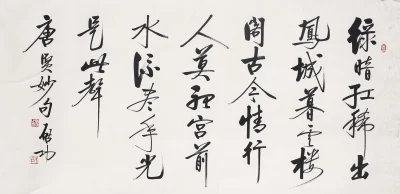 綠暗紅稀出
鳳城暮雲樓
閣古今情行
人莫聽宮前
水流盡年光
是此聲
唐賢妙句 啟功